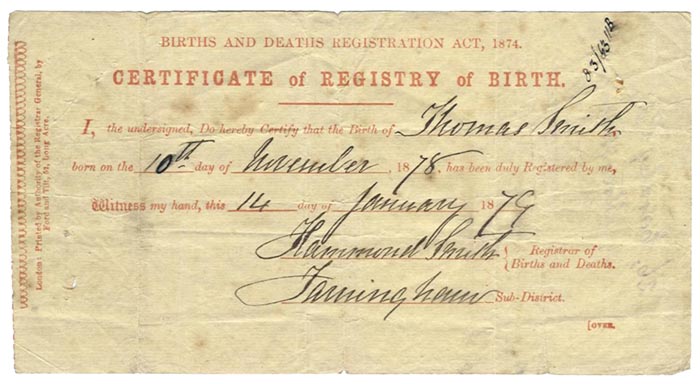 BIRTHS AND DEATHS REGISTRATION ACT, 1874.
CERTIFICATE of REGISTRY of BIRTH.
I, the undersigned, Do hereby Certify that the Birth of Thomas Smith
born on the 10th day of November 1878, has been duly Registered by me,
Witness my hand, this 14 day of January 1879
Hammond Smith { Registrar of
Births and Deaths.
Farningham Sub-District.
[OVER.
London: Printed by Authority of the Registrar General, by
Ford and Tilt, 52, Long Acre.